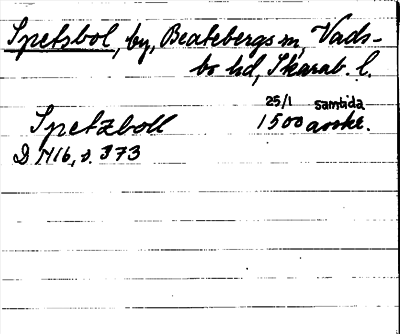 Spetsbol, by, Beatebergs sn, Vads-
bo hd, Skarab. l.
25/1 samtida
Spetzboll 1500 avskr.
D 1416, s. 373